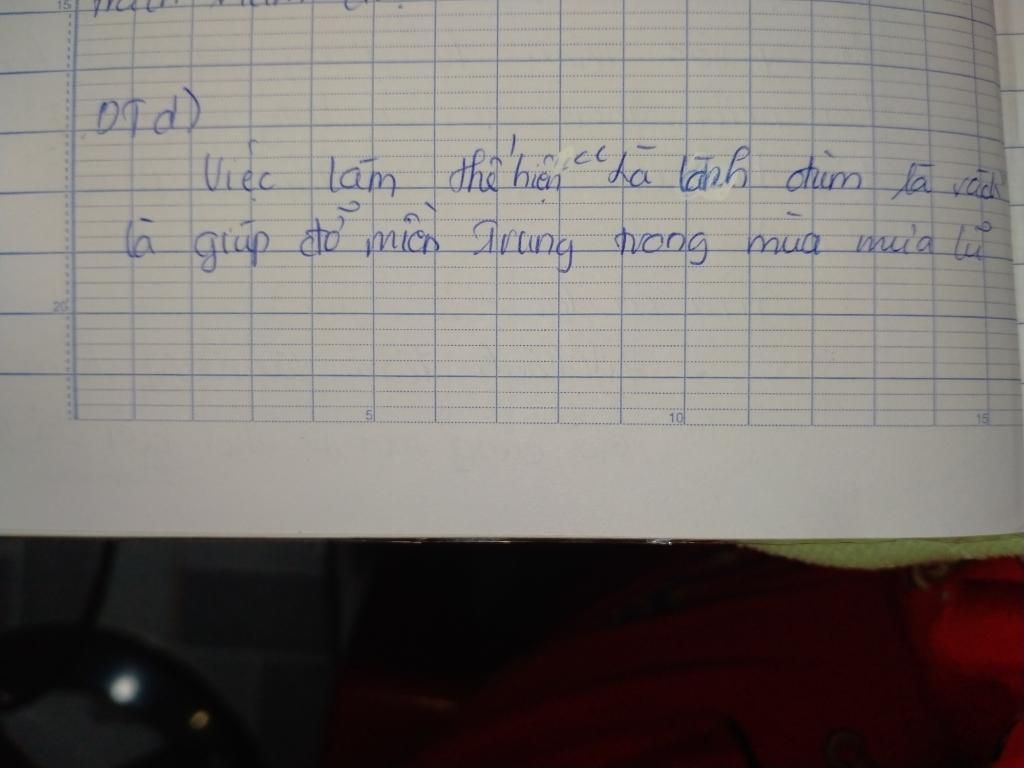 DTd)
Việc làm thể hiện "Lá lành đùm lá rách
là giúp đỡ miền Trung trong mùa mưa lũ
15
20
5 10 15